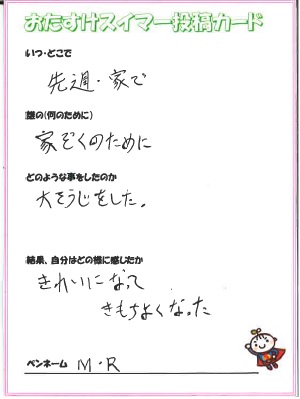 おたすけスイマー投稿カード
いつ・どこで
先週・家で
誰の(何のために)
家ぞくのために
どのような事をしたのか
大そうじをした。
結果、自分はどの様に感じたか
きれいになって
きもちよくなった
ペンネーム M・R